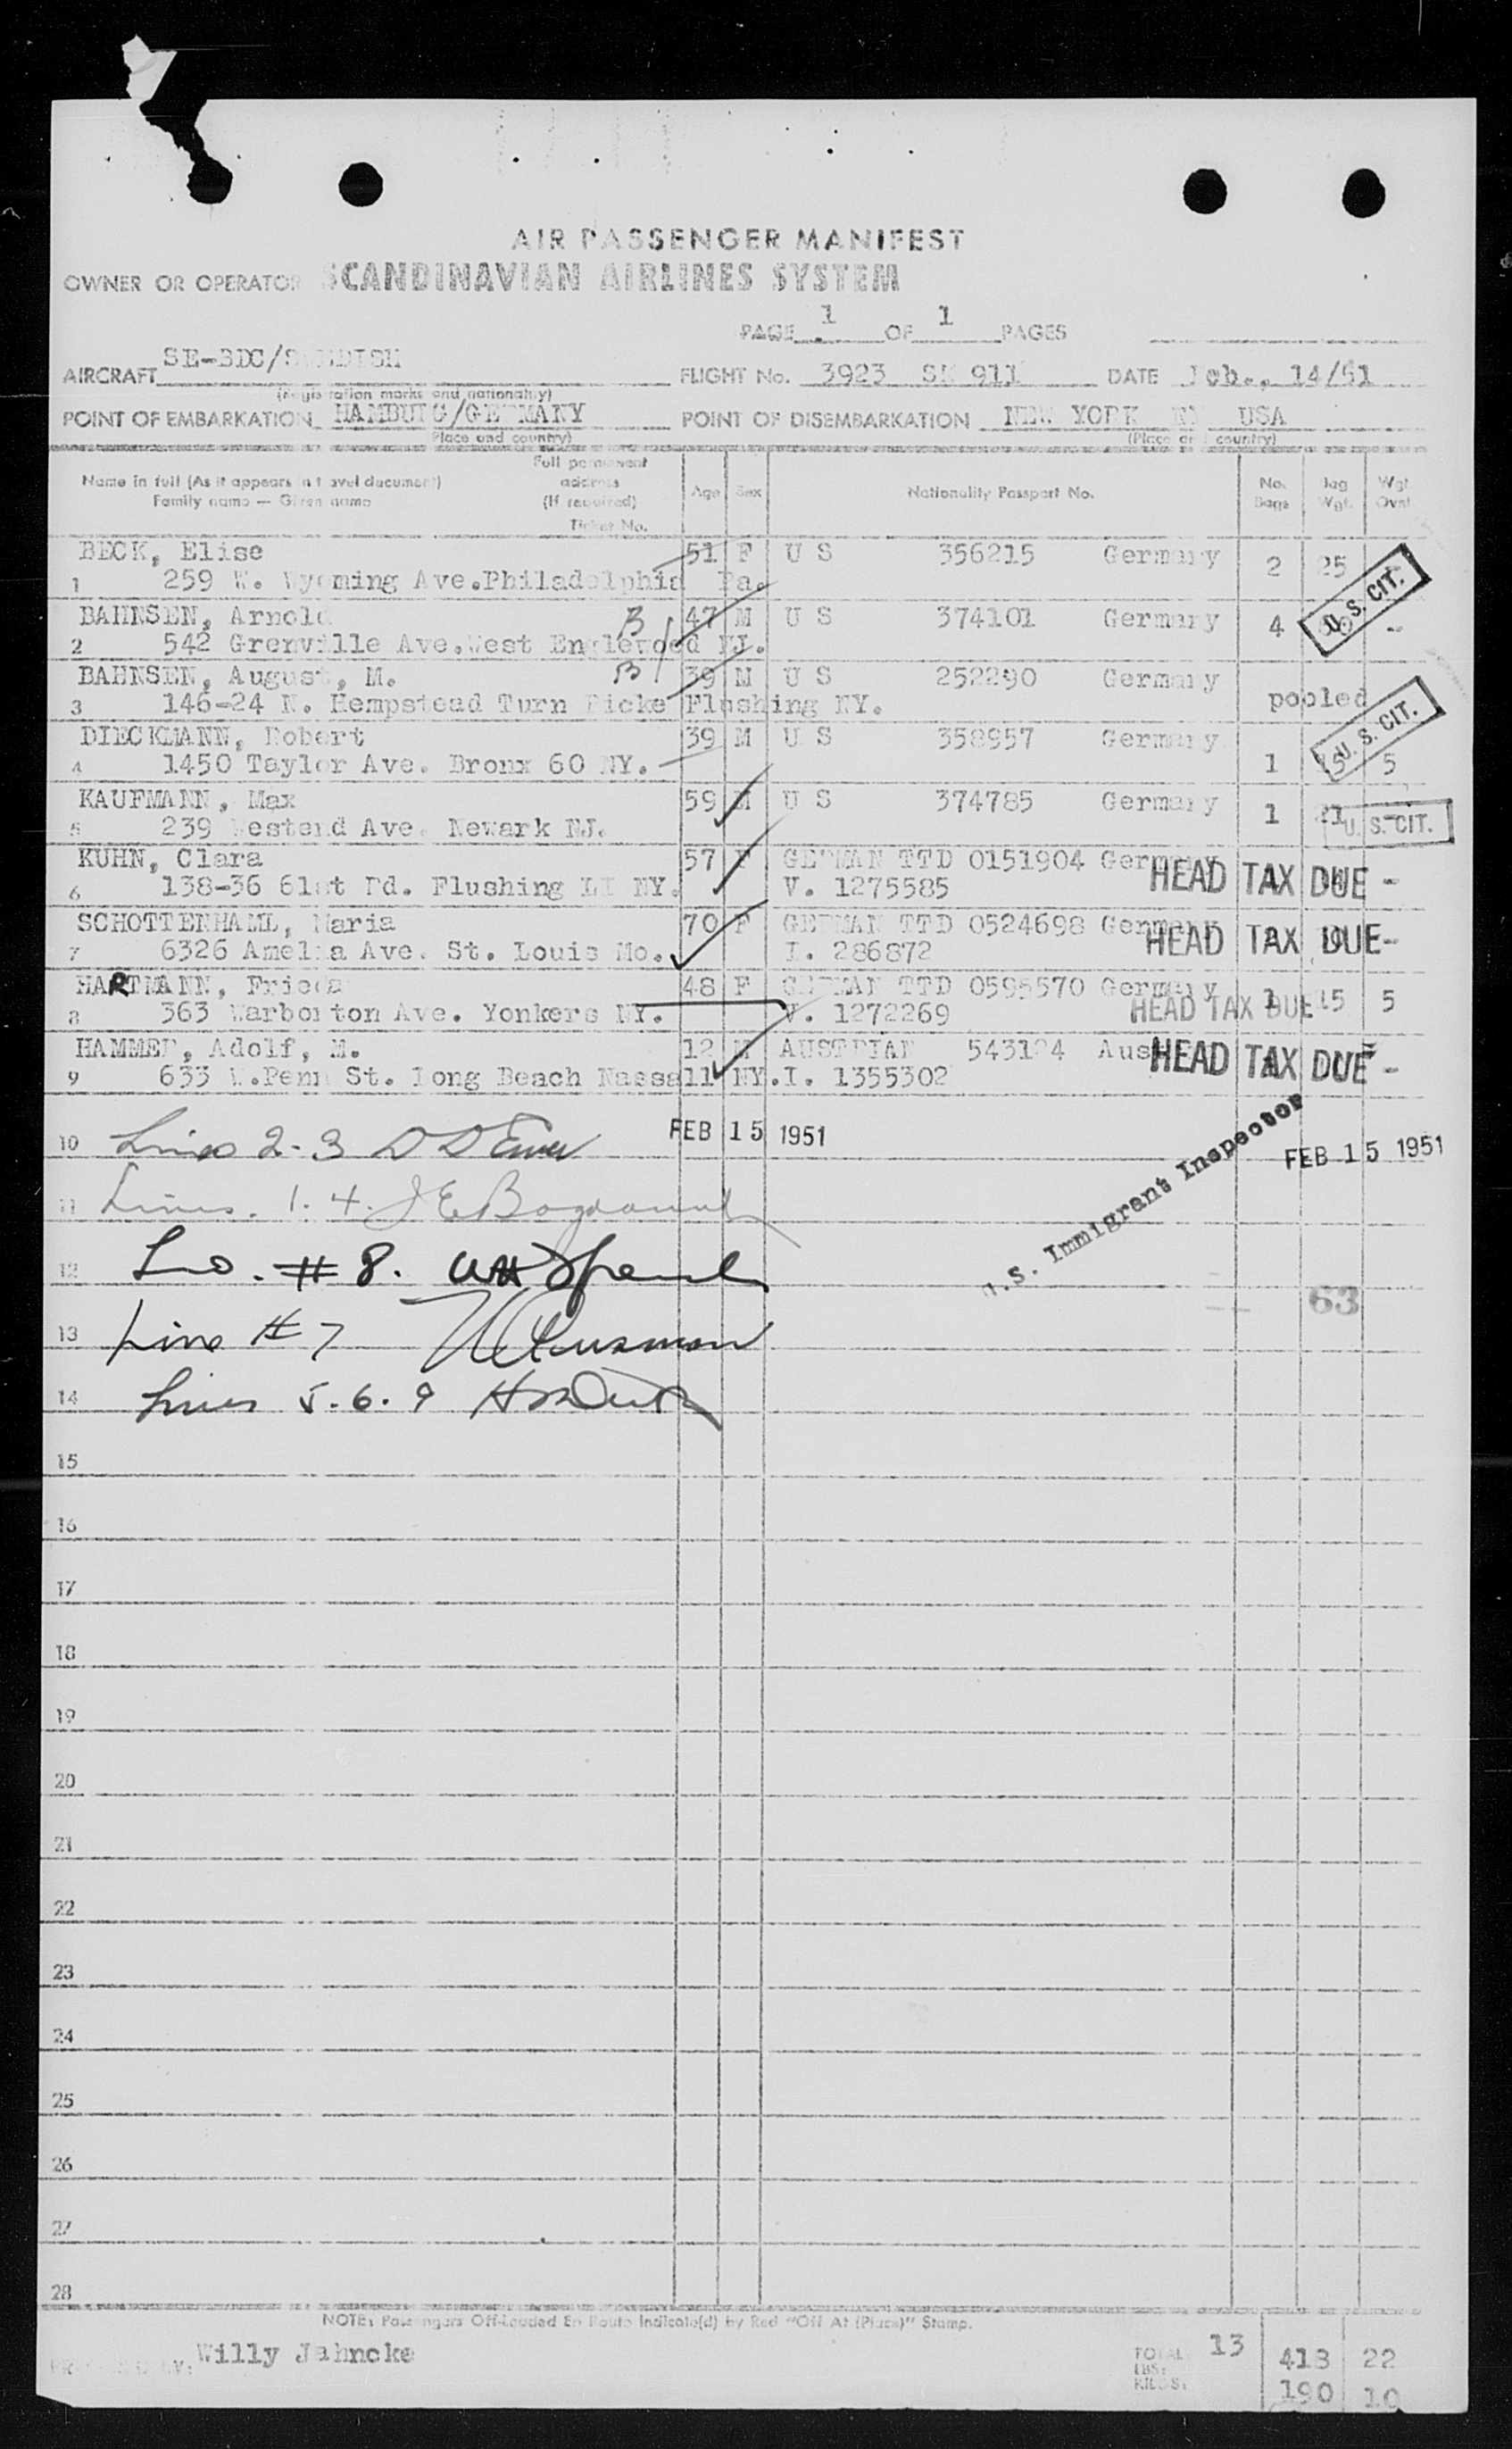 AIR PASSENGER MANIFEST
OWNER OR OPERATOR SCANDINAVIAN AIRLINES SYSTEM
PAGE 1 OF 1 PAGES
AIRCRAFT SE-BDC/SWEDISH FLIGHT No. 3923 SK 911 DATE Feb., 14/51
(Registration marks and nationality)
POINT OF EMBARKATION HAMBURG/GERMANY POINT OF DISEMBARKATION NEW YORK NY USA
(Place and country) (Place and country)
Name in full (As it appears in travel document) Family name — Given name Full permanent address (If required) Ticket No. Age Sex Nationality Passport No. No. Bags Bag Wgt. Wgt. Ovst
BECK, Elise 51 F U S 356215 Germany 2 25
1 259 W. Wyoming Ave.Philadelphia Pa. U. S. CIT.
BAHNSEN, Arnold B 47 M U S 374101 Germany 4 -
2 542 Grenville Ave.West Englewood NJ.
BAHNSEN, August, M. B 39 M U S 252290 Germany pooled
3 146-24 N. Hempstead Turn Picke Flushing NY.
DIECKMANN, Robert 39 M U S 358957 Germany U. S. CIT.
4 1450 Taylor Ave. Bronx 60 NY. 1 5
KAUFMANN, Max 59 M U S 374785 Germany 1 21 -
5 239 Westend Ave. Newark NJ. U. S. CIT.
KUHN, Clara 57 F GERMAN TTD 0151904 Germany
6 138-36 61st Rd. Flushing LI NY. V. 1275585 HEAD TAX DUE -
SCHOTTENHAML, Maria 70 F GERMAN TTD 0524698 Germany
7 6326 Amelia Ave. St. Louis Mo. I. 286872 HEAD TAX DUE -
HARTMANN, Frieda 48 F GERMAN TTD 0595570 Germany 1 15 5
8 363 Warborton Ave. Yonkers NY. V. 1272269 HEAD TAX DUE
HAMMER, Adolf, M. 12 M AUSTRIAN 543124
9 633 W.Penn St. Long Beach Nassall NY.I. 1355302 HEAD TAX DUE -
10 Lines 2-3 FEB 15 1951
U.S. Immigrant Inspector FEB 15 1951
11 Lines. 1. 4.
12 #8.
63
13 Line #7
14 Lines 5.6.9
15
16
17
18
19
20
21
22
23
24
25
26
27
28
NOTE: Passengers Off-Loaded En Route Indicate(d) by Red "Off At (Place)" Stamp.
Willy Jahncke
TOTAL 13
LBS: 418 22
KILOS: 190 10